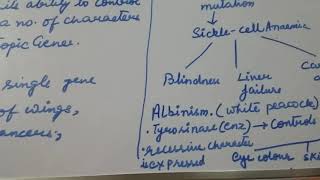 ability to control
a no. of characters
Genes.
single gene
of wings,
mutation
Sickle-cell Anaemia
Blindness
Liver failure
Albinism. (white peacock)
• Tyrosinase (enz) → Controls
• recessive character
is expressed
Eye colour